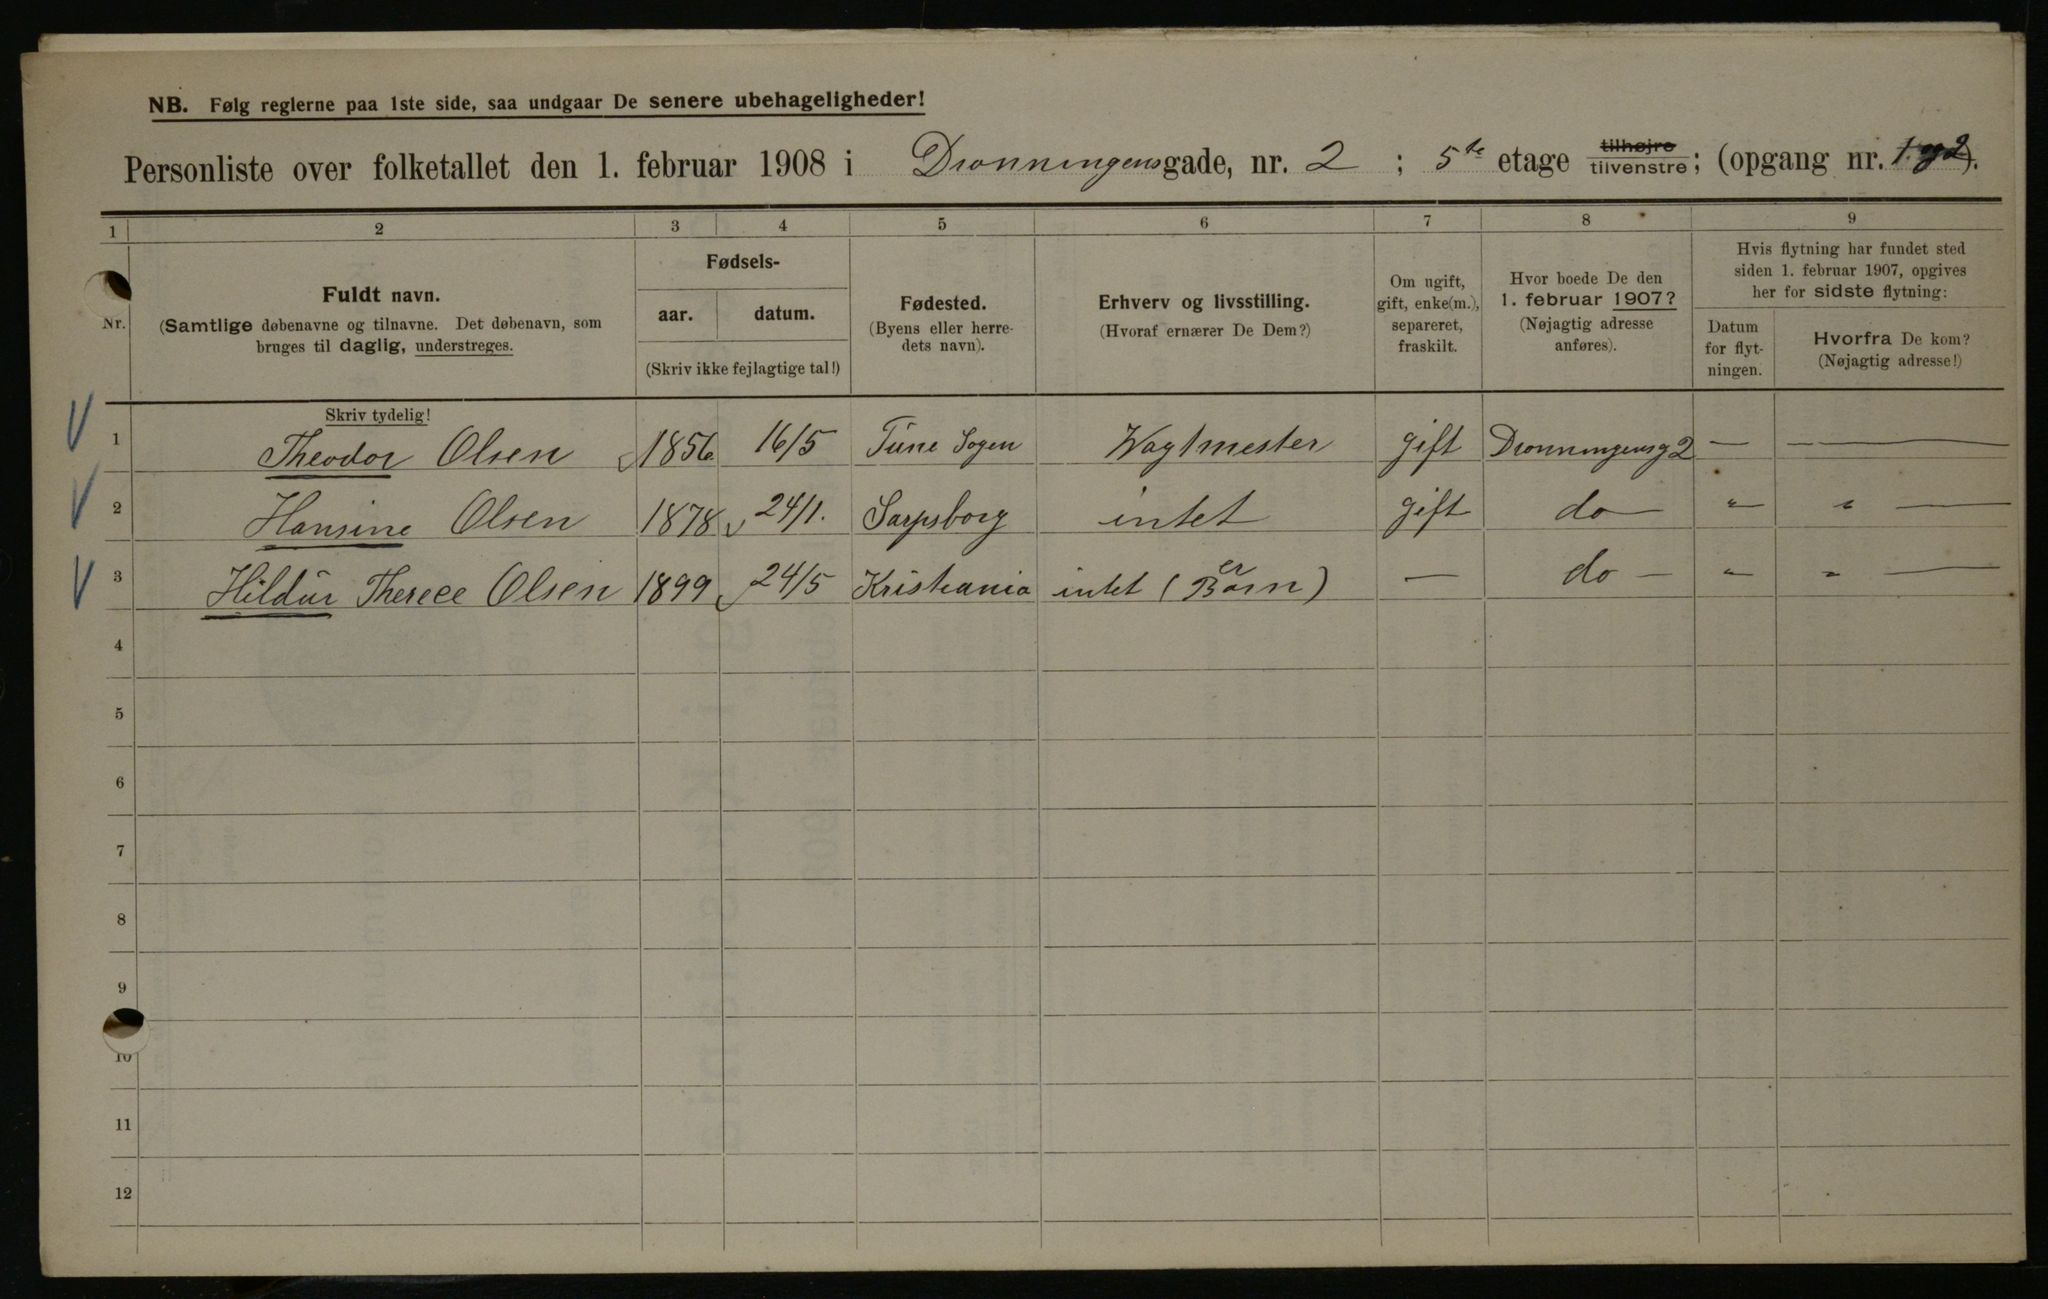 NB. Følg reglerne paa 1ste side, saa undgaar De senere ubehageligheder!
Personliste over folketallet den 1. februar 1908 i Dronningensgade, nr. 2 ; 5te etage tilhøjre tilvenstre; (opgang nr. 1 og 2).
1 2 3 4 5 6 7 8 9
Nr.
Fuldt navn.
(Samtlige døbenavne og tilnavne. Det døbenavn, som
bruges til daglig, understreges.
Fødsels-
aar. datum.
(Skriv ikke fejlagtige tal!)
Fødested.
(Byens eller herre-
dets navn).
Erhverv og livsstilling.
(Hvoraf ernærer De Dem?)
Om ugift,
gift, enke(m.),
separeret,
fraskilt.
Hvor boede De den
1. februar 1907?
(Nøjagtig adresse
anføres).
Hvis flytning har fundet sted
siden 1. februar 1907, opgives
her for sidste flytning:
Datum
for flyt-
ningen.
Hvorfra De kom?
(Nøjagtig adresse!)
Skriv tydelig!
1 Theodor Olsen 1856 16/5 Tune Sogen Wagtmester gift Dronningensg 2 — —
2 Hansine Olsen 1878 24/1. Sarpsborg intet gift do — " " —
3 Hildur Therece Olsen 1899 24/5 Kristiania intet (er Barn) — do — " " —
4
5
6
7
8
9
10
11
12